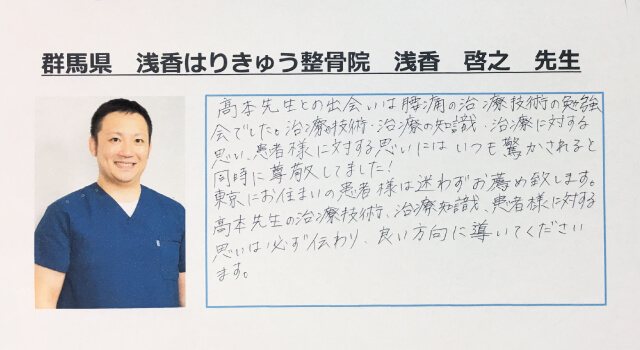 群馬県　浅香はりきゅう整骨院　浅香　啓之　先生
髙本先生との出会いは腰痛の治療技術の勉強
会でした。治療の技術・治療の知識・治療に対する
思い、患者様に対する思いにはいつも驚かされると
同時に尊敬してました！
東京にお住まいの患者様は迷わずお薦め致します。
髙本先生の治療技術、治療知識、患者様に対する
思いは必ず伝わり、良い方向に導いてください
ます。